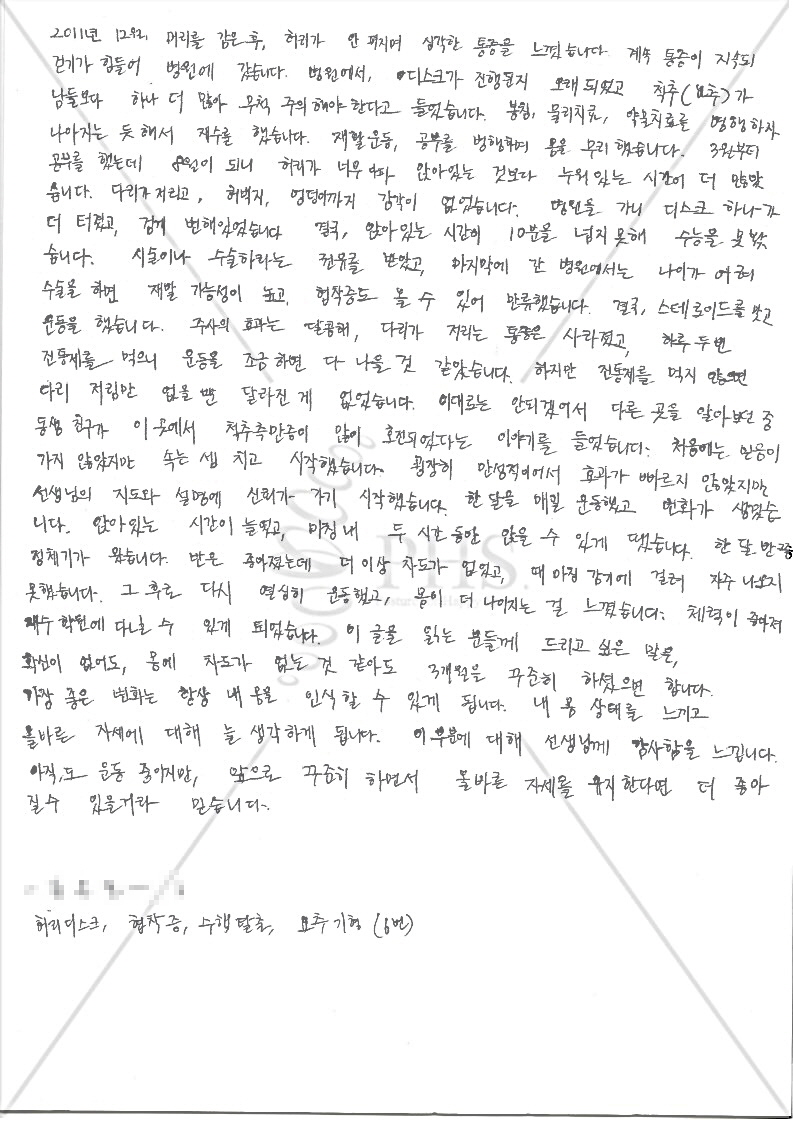 2011년 12월, 머리를 감은 후, 허리가 안 펴지며 심각한 통증을 느꼈습니다. 계속 통증이 지속되
걷기가 힘들어 병원에 갔습니다. 병원에서, 디스크가 진행된지 오래 되었고 척추(요추)가
남들보다 하나 더 많아 무척 주의해야 한다고 들었습니다. 봉침, 물리치료, 약물치료를 병행하자
나아지는 듯 해서 재수를 했습니다. 재활운동, 공부를 병행하며 몸을 무리했습니다. 3월부터
공부를 했는데 8월이 되니 허리가 너무 아파 앉아있는 것보다 누워있는 시간이 더 많았
습니다. 다리가 저리고, 허벅지, 엉덩이까지 감각이 없었습니다. 병원을 가니 디스크 하나가
더 터졌고, 검게 변해있었습니다 결국, 앉아있는 시간이 10분을 넘지 못해 수능을 못 봤
습니다. 시술이나 수술하라는 권유를 받았고, 마지막에 간 병원에서는 나이가 어려
수술을 하면 재발 가능성이 높고, 협착증도 올 수 있어 만류했습니다. 결국, 스테로이드를 맞고
운동을 했습니다. 주사의 효과는 달콤해, 다리가 저리는 통증은 사라졌고, 하루 두번
진통제를 먹으니 운동을 조금 하면 다 나을 것 같았습니다. 하지만 진통제를 먹지 않으면
다리 저림만 없을 뿐 달라진 게 없었습니다. 이대로는 안되겠어서 다른 곳을 알아보던 중
동생 친구가 이 곳에서 척추측만증이 많이 호전되었다는 이야기를 들었습니다. 처음에는 믿음이
가지 않았지만 속는 셈 치고 시작했습니다. 굉장히 만성적이어서 효과가 빠르지 않았지만
선생님의 지도와 설명에 신뢰가 가기 시작했습니다. 한 달을 매일 운동했고 변화가 생겼습
니다. 앉아있는 시간이 늘었고, 마침내 두 시간 동안 앉을 수 있게 됐습니다. 한 달 반쯤
정체기가 왔습니다. 반은 좋아졌는데 더 이상 차도가 없었고, 때 아침 감기에 걸려 자주 나오지
못했습니다. 그 후로 다시 열심히 운동했고, 몸이 더 나아지는 걸 느꼈습니다. 체력이 좋아져
재수 학원에 다닐 수 있게 되었습니다. 이 글을 읽는 분들께 드리고 싶은 말은,
확신이 없어도, 몸에 차도가 없는 것 같아도 3개월은 꾸준히 하셨으면 합니다.
가장 좋은 변화는 항상 내 몸을 인식할 수 있게 됩니다. 내 몸 상태를 느끼고
올바른 자세에 대해 늘 생각하게 됩니다. 이 부분에 대해 선생님께 감사함을 느낍니다.
아직도 운동 중이지만, 앞으로 꾸준히 하면서 올바른 자세를 유지한다면 더 좋아
질 수 있을거라 믿습니다.
허리디스크, 협착증, 수핵탈출, 요추기형 (6번)
PHS.